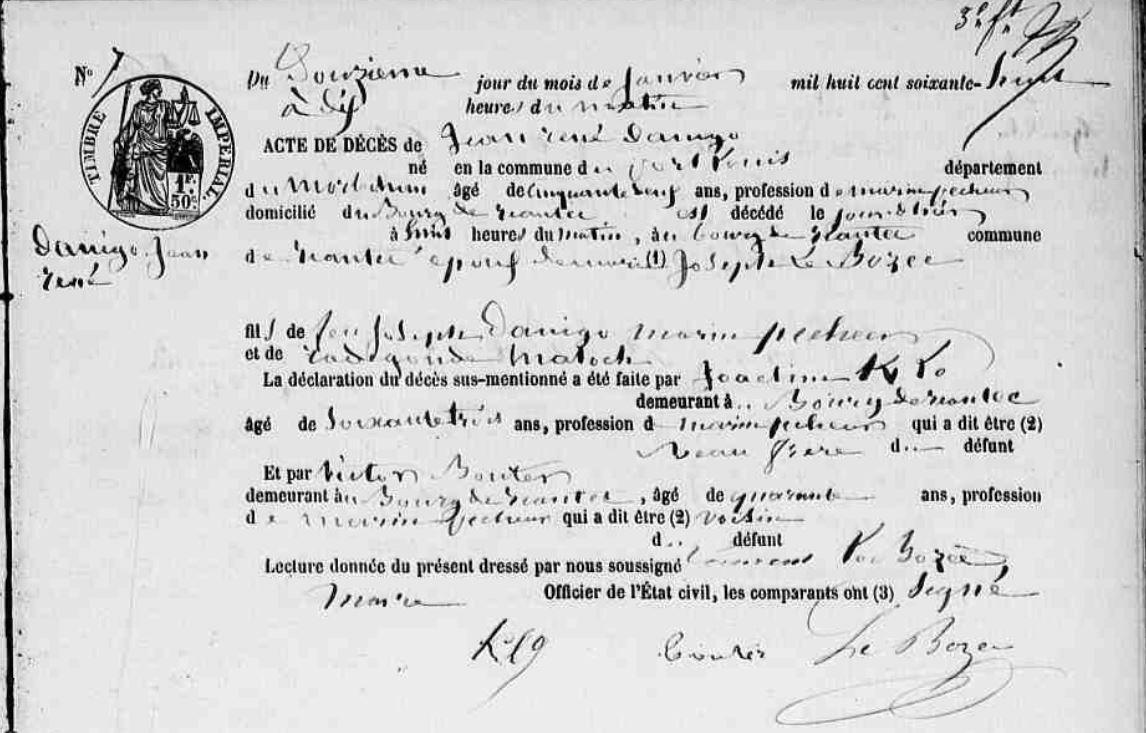 3e ft
N° 7
TIMBRE IMPÉRIAL
1F. 50c.
Du Douzieme jour du mois de Janvier mil huit cent soixante-
à dix heures du matin
ACTE DE DÉCÈS de Jean rené Danigo
né en la commune du port Louis département
du Morbihan âgé de Cinquante neuf ans, profession de marin pecheur
domicilié du Bourg de riantec est décédé le jour d'hier
à huit heures du matin, au bourg de riantec commune
Danigo Jean
rené
de riantec epoux de marie (1) Joseph Le Bozec
fils de feu Joseph Danigo marin pecheur
et de radegonde
La déclaration du décès sus-mentionné a été faite par Joachim
demeurant à .. Bourg de riantec
âgé de soixante trois ans, profession de marin pecheur qui a dit être (2)
Beau frere d.. défunt
Et par Victor
demeurant au Bourg de riantec, âgé de quarante ans, profession
de marin pecheur qui a dit être (2) voisin
d.. défunt
Lecture donnée du présent dressé par nous soussigné Bozec
Maire Officier de l'État civil, les comparants ont (3) Signé
Le Bozec